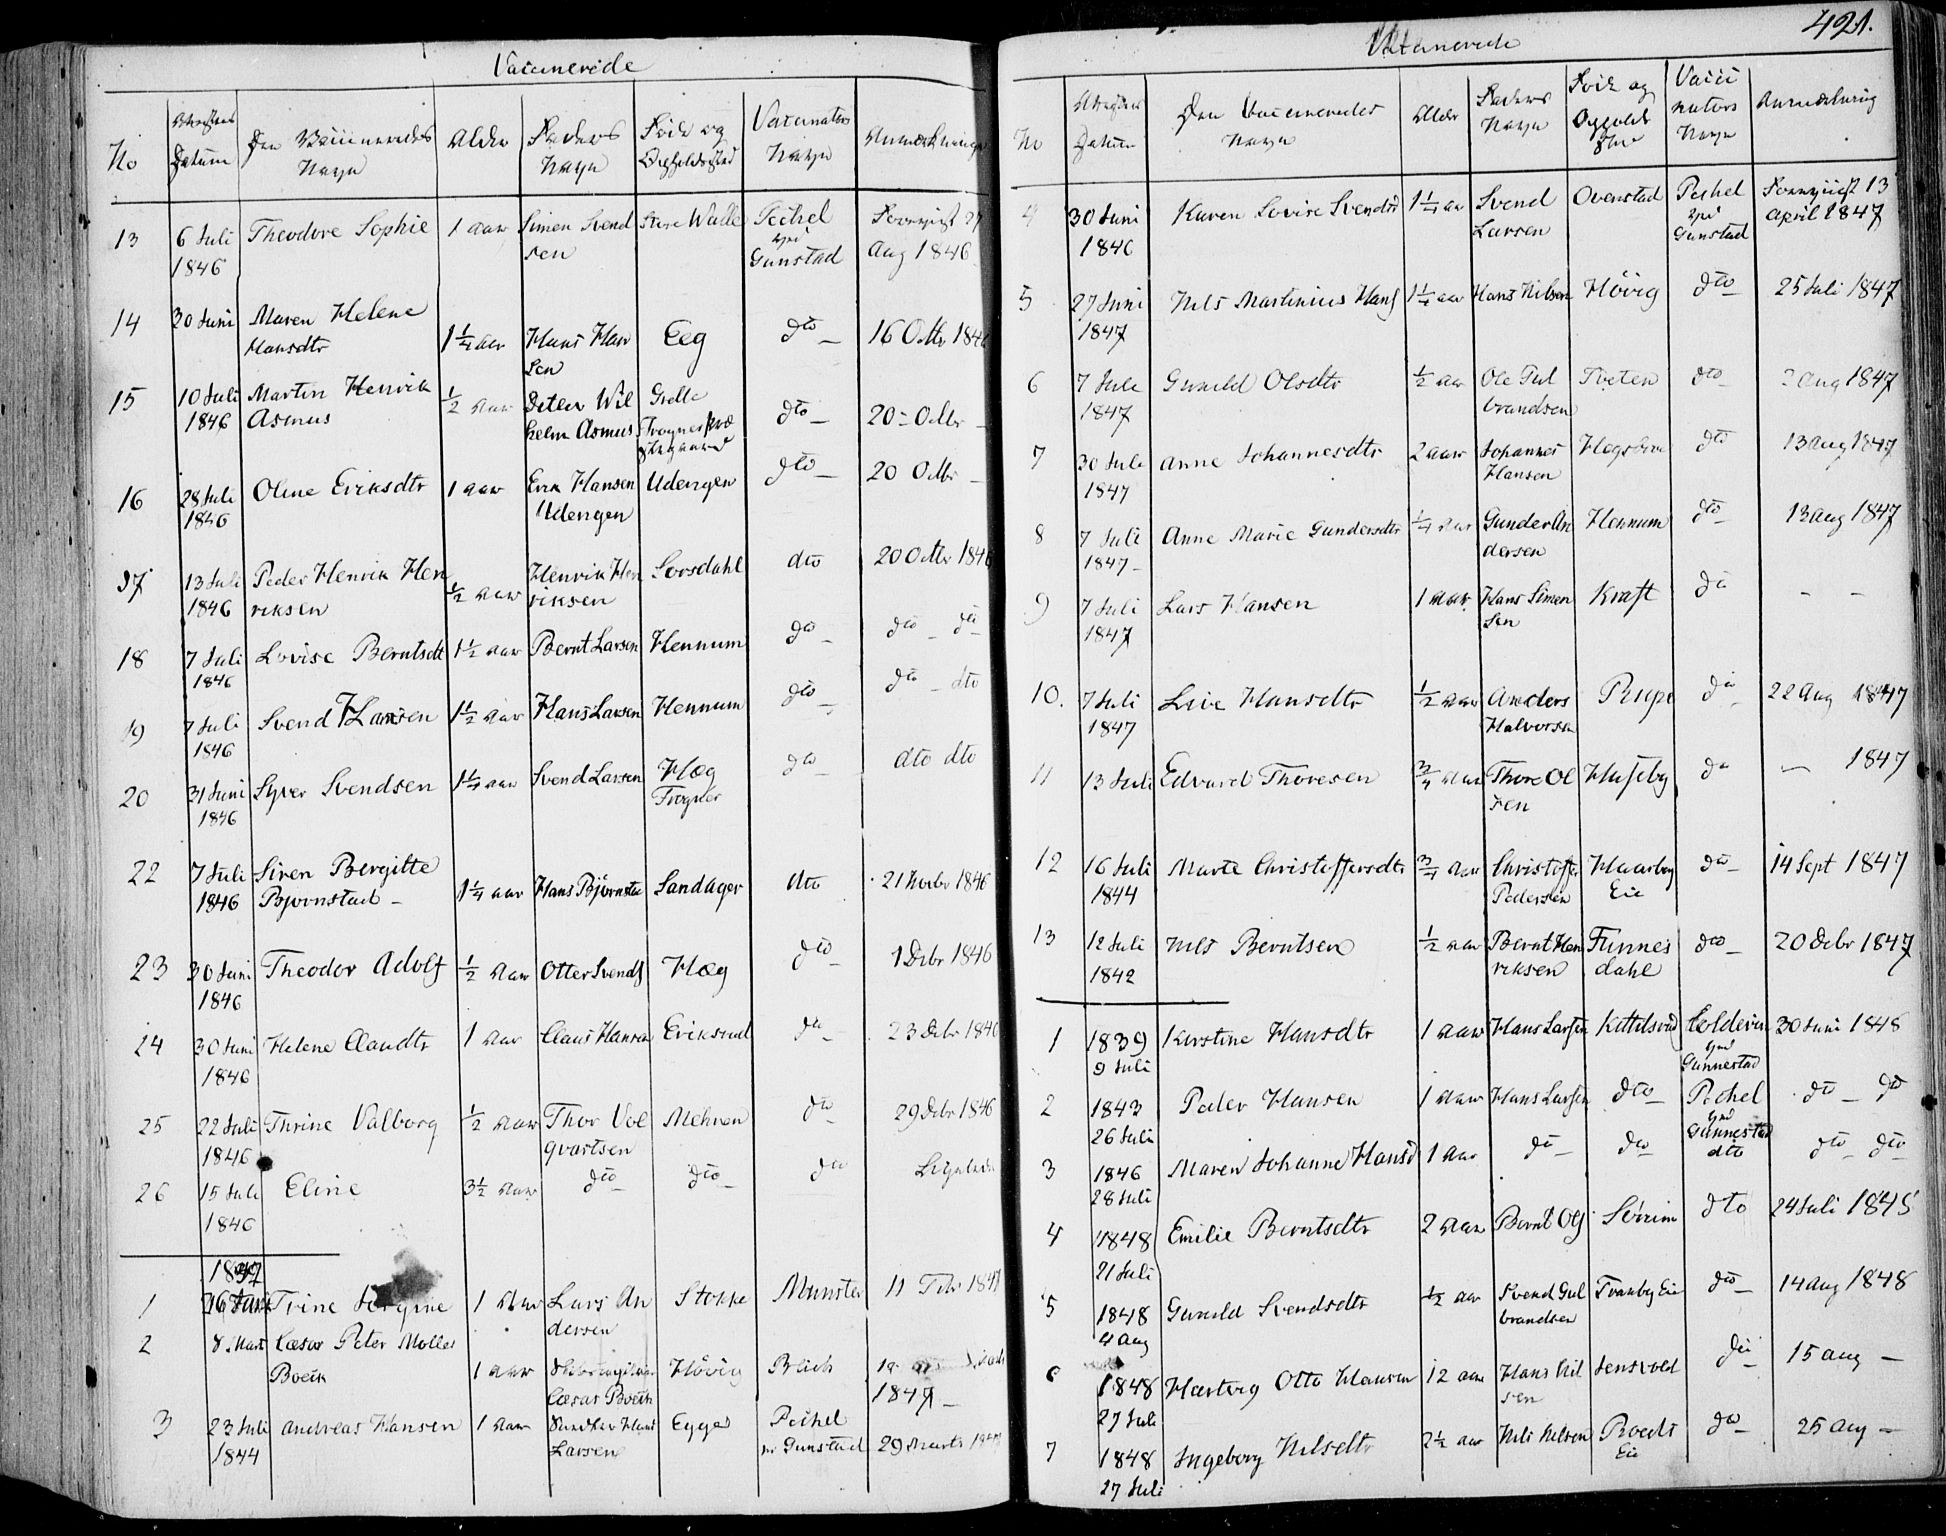 Vaccinerede
No
Attestens Datum
Den Vaccineredes Navn
Alder
Faders Navn
Føde og Opholdssted
Vaccinators Navn
Anmærkninger
13 6 Juli 1846 Theodore Sophie 1 aar Simen Svendsen Store Walle Pechel Gunstad Aug 1846
14 30 Juni Maren Helene Hansdtr 1¼ aar Hans Hansen Eeg dto 16 Octbr 1846
15 10 Juli 1846 Martin Henrik Asmus ½ aar Detlev Wilhelm Asmus dto 20 Octbr
16 28 Juli 1846 Oline Eriksdtr 1 aar Erik Hansen Udengen Udengen dto 20 Octbr
17 13 Juli 1846 Peder Henrik Henriksen ½ aar Henrik Henriksen Sorsdahl dto 20 Octbr 1846
18 7 Juli 1846 Lovise Berntsdtr 1½ aar Bernt Larsen Hennum dto dto dto
19 7 Juli 1846 Svend Hansen 1½ aar Hans Larsen Hennum dto dto dto
20 31 Juni 1846 Syver Svendsen 1¼ aar Svend Larsen Hæg Frogner dto dto dto
22 7 Juli 1846 Siren Bergitte Bjornstad 1¼ aar Hans Björnsta Landager dto 21 Novbr 1846
23 30 Juni 1846 Theodor Adolf ½ aar Otter Svends Hæg dto 1 Debr 1846
24 30 Juni 1846 Helene Claudtr 1 aar Claus Hansen Eriksrud dto 23 Debr 1846
25 22 Juli 1846 Thrine Valborg ½ aar Thor Volqvartsen Mehren dto 29 Debr 1846
26 15 Juli 1846 Eline 3½ aar dto dto dto Ligeledes
1 1847 Trine 1 aar Lars Andersen Stokke Munster 11 Febr 1847
2 8 Mart Cæsar Peter Møller Boeck 1 aar Cæsar Boeck Hövig 1847
3 23 Juli 1844 Andreas Hansen 1 aar Larsen Egge Pechel Gunstad 29 Marts 1847
421.
Vaccinerede
No
Attestens Datum
Den Vaccineredes Navn
Alder
Faders Navn
Føde og Opholds Sted
Vaccinators Navn
Anmærkning
4 30 Juni 1846 Karen Lovise Svendsd 1¼ aar Svend Larsen Ovenstad Pechel Gunstad 13 April 1847
5 27 Juni 1847 Nils Martinius Hans 1¼ aar Hans Nilsen Hövig dto 25 Juli 1847
6 7 Juli 1847 Gunild Olsdtr ½ aar Ole Gulbrandsen Tveten dto 2 Aug 1847
7 30 Juli 1847 Anne Johannesdtr 2 aar Johannes Hansen dto 13 Aug 1847
8 7 Juli 1847 Anne Marie Gundersdtr ¼ aar Gunder Andersen Hennum dto 13 Aug 1847
9 7 Juli 1847 Lars Hansen 1 aar Hans Simensen Kraft do
10. 7 Juli 1847 Live Hansdtr ½ aar Anders Halvorsen do 22 Aug 1847
11 13 Juli Edvard Thoresen ¾ aar Thore Olsen Huseby do 1847
12 16 Juli 1844 Marte Christoffersdtr ¾ aar Christoffer Pedersen Haarby Eie dto 14 Sept 1847
13 12 Juli 1842 Nils Berntsen ½ aar Bernt Henriksen Finnesdahl dto 20 Debr 1847
1 1839 9 Juli Kirstine Hansdtr 1 aar Hans Larsen Kittilsrud Coldevin Gunnestad 30 Juni 1848
2 1843 26 Juli Peder Hansen 1 aar Hans Larsen dto Pechel Gunnestad dto dto
3 1846 28 Juli Maren Johanne Hansd 1 aar dto dto dto dto dto
4 1848 21 Juli Emilie Berntsdtr 2 aar Bernt Ols Sörum dto 24 Juli 1848
5 1848 4 Aug Gunild Svendsdtr ½ aar Svend Gulbrandsen Tranby Eie dto 14 Aug 1848
6 1848 27 Juli Hartvig Otto Hansen 12 aar Hans Nilsen Jensvold do 15 Aug
7 1848 27 Juli Ingeborg Nilsdtr 2½ aar Nils Nilsen Eie do 25 Aug